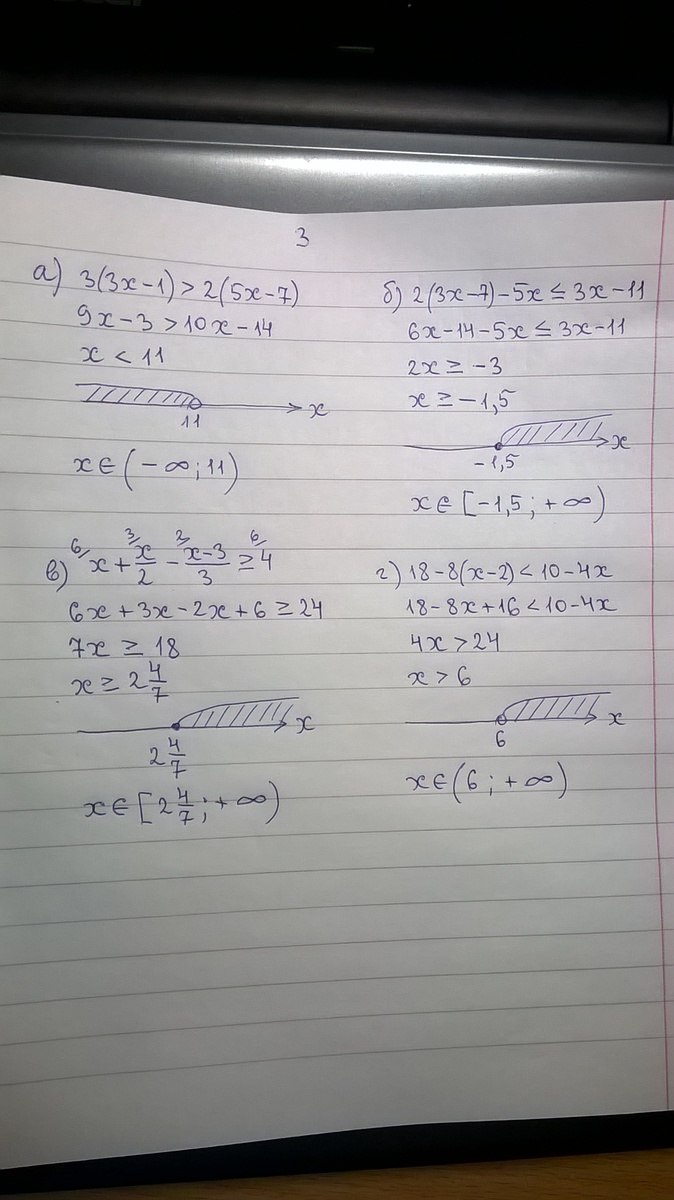 3
а) 3(3x-1) > 2(5x-7)
9x-3 > 10x-14
x < 11
11
x
x ∈ (-∞; 11)
б) 2(3x-7)-5x ≤ 3x-11
6x-14-5x ≤ 3x-11
2x ≥ -3
x ≥ -1,5
-1,5
x
x ∈ [-1,5; +∞)
в) ⁶⁄x + ³⁄x/2 - ²⁄(x-3)/3 ≥ ⁶⁄4
6x+3x-2x+6 ≥ 24
7x ≥ 18
x ≥ 2 4/7
2 4/7
x
x ∈ [2 4/7; +∞)
г) 18-8(x-2) < 10-4x
18-8x+16 < 10-4x
4x > 24
x > 6
6
x
x ∈ (6; +∞)